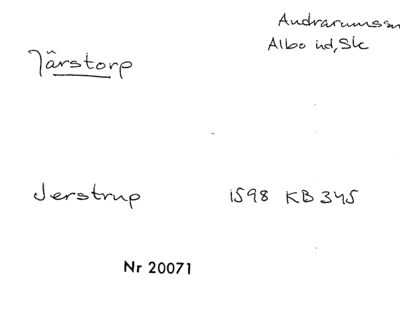 Andrarumssn
Albo hd, Sk
Järstorp
Jerstrup 1598 KB 345
Nr 20071